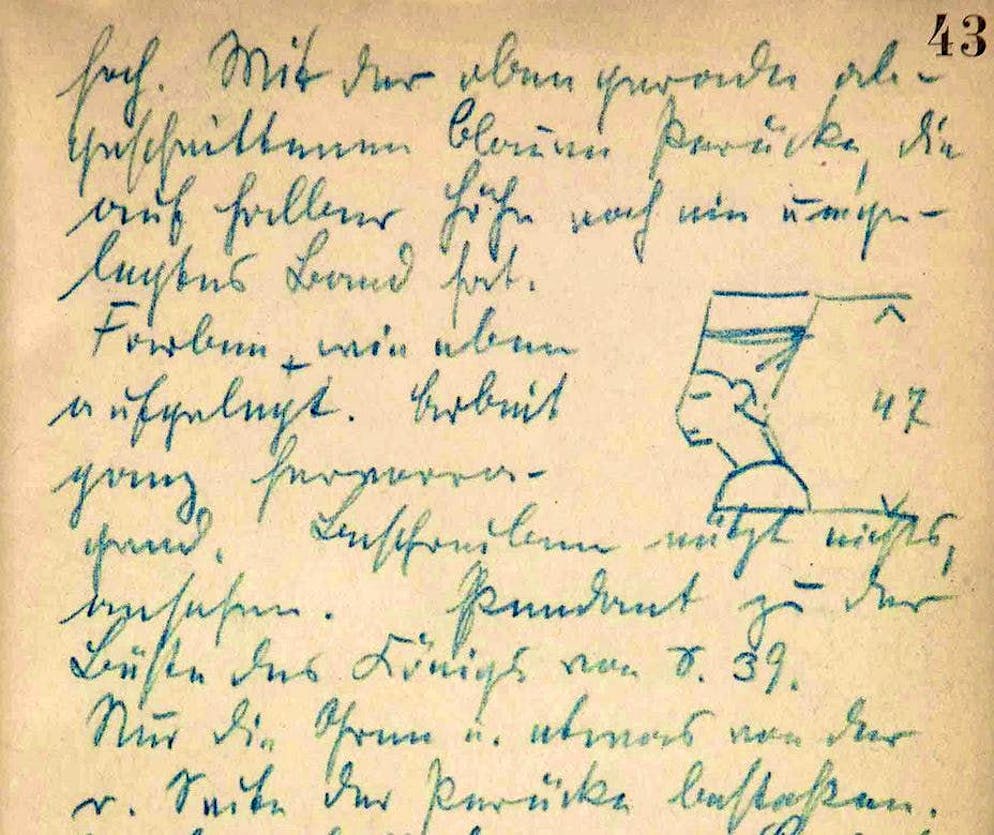 43
hoch. Mit der oben gerade ab-
geschnittenen blauen Perücke, die
auf halber Höhe noch ein umge-
legtes Band hat.
Farben wie eben
aufgelegt. Arbeit
47
ganz hervorra-
gend. Beschreiben nützt nichts,
ansehen. Pendant zu der
Büste des Königs von S. 39.
Nur die Ohren u. etwas von der
r. Seite der Perücke bestoßen.